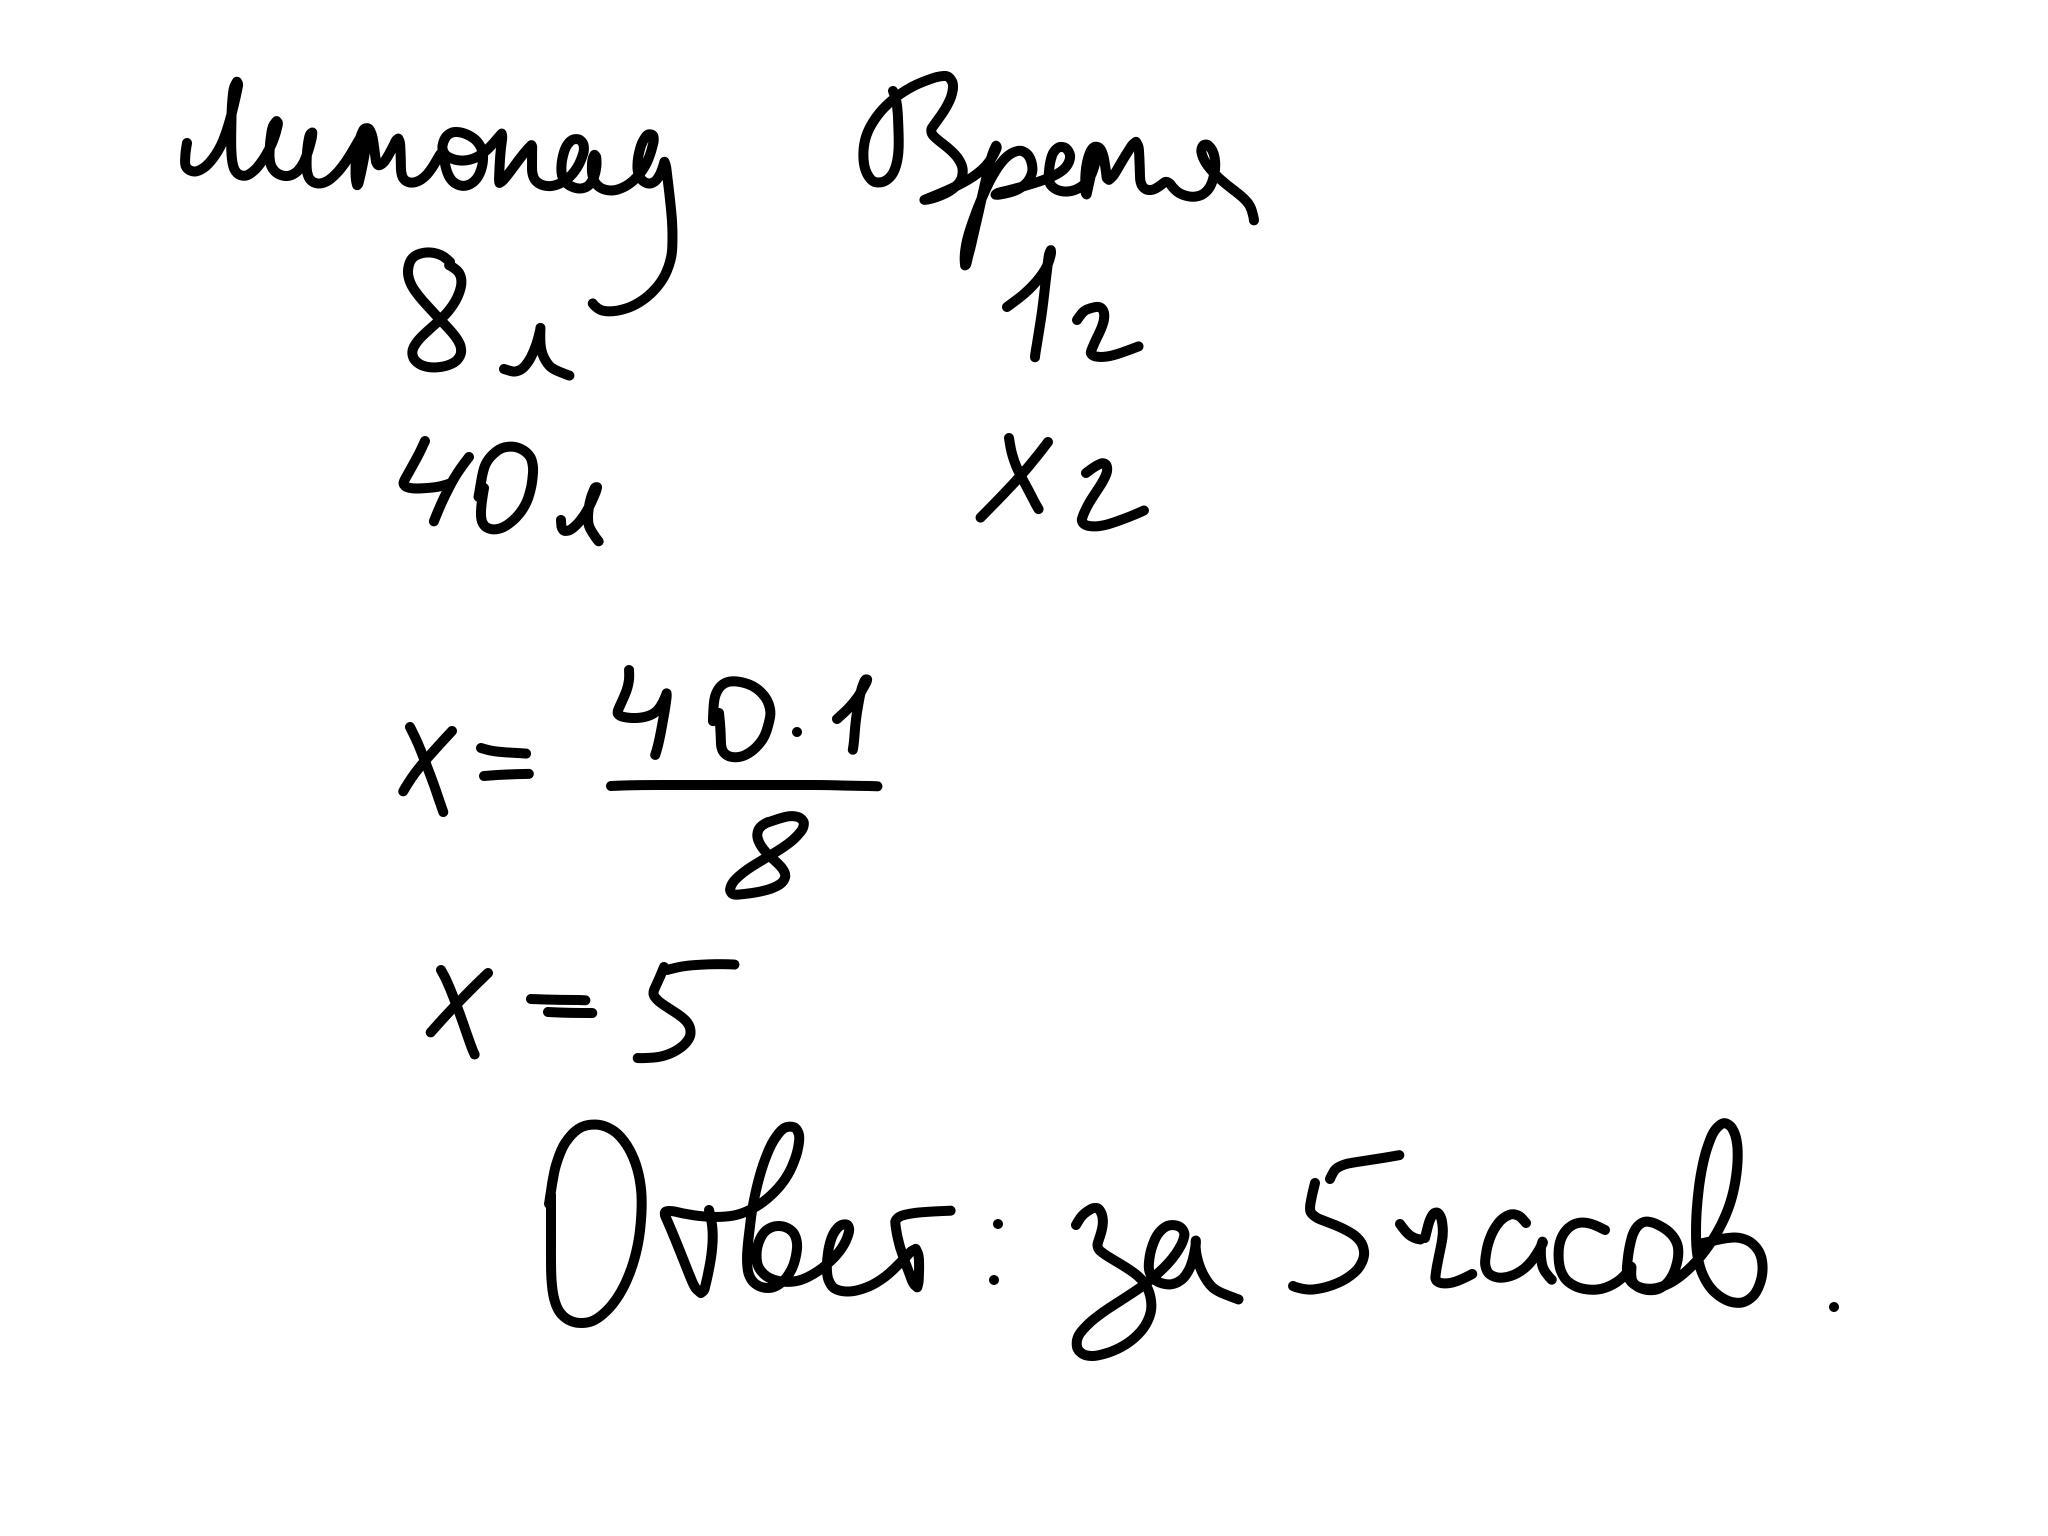 Лимонад Время
8 л 1 ч
40 л x ч
x = \frac{40 \cdot 1}{8}
x = 5
Ответ: за 5 часов.